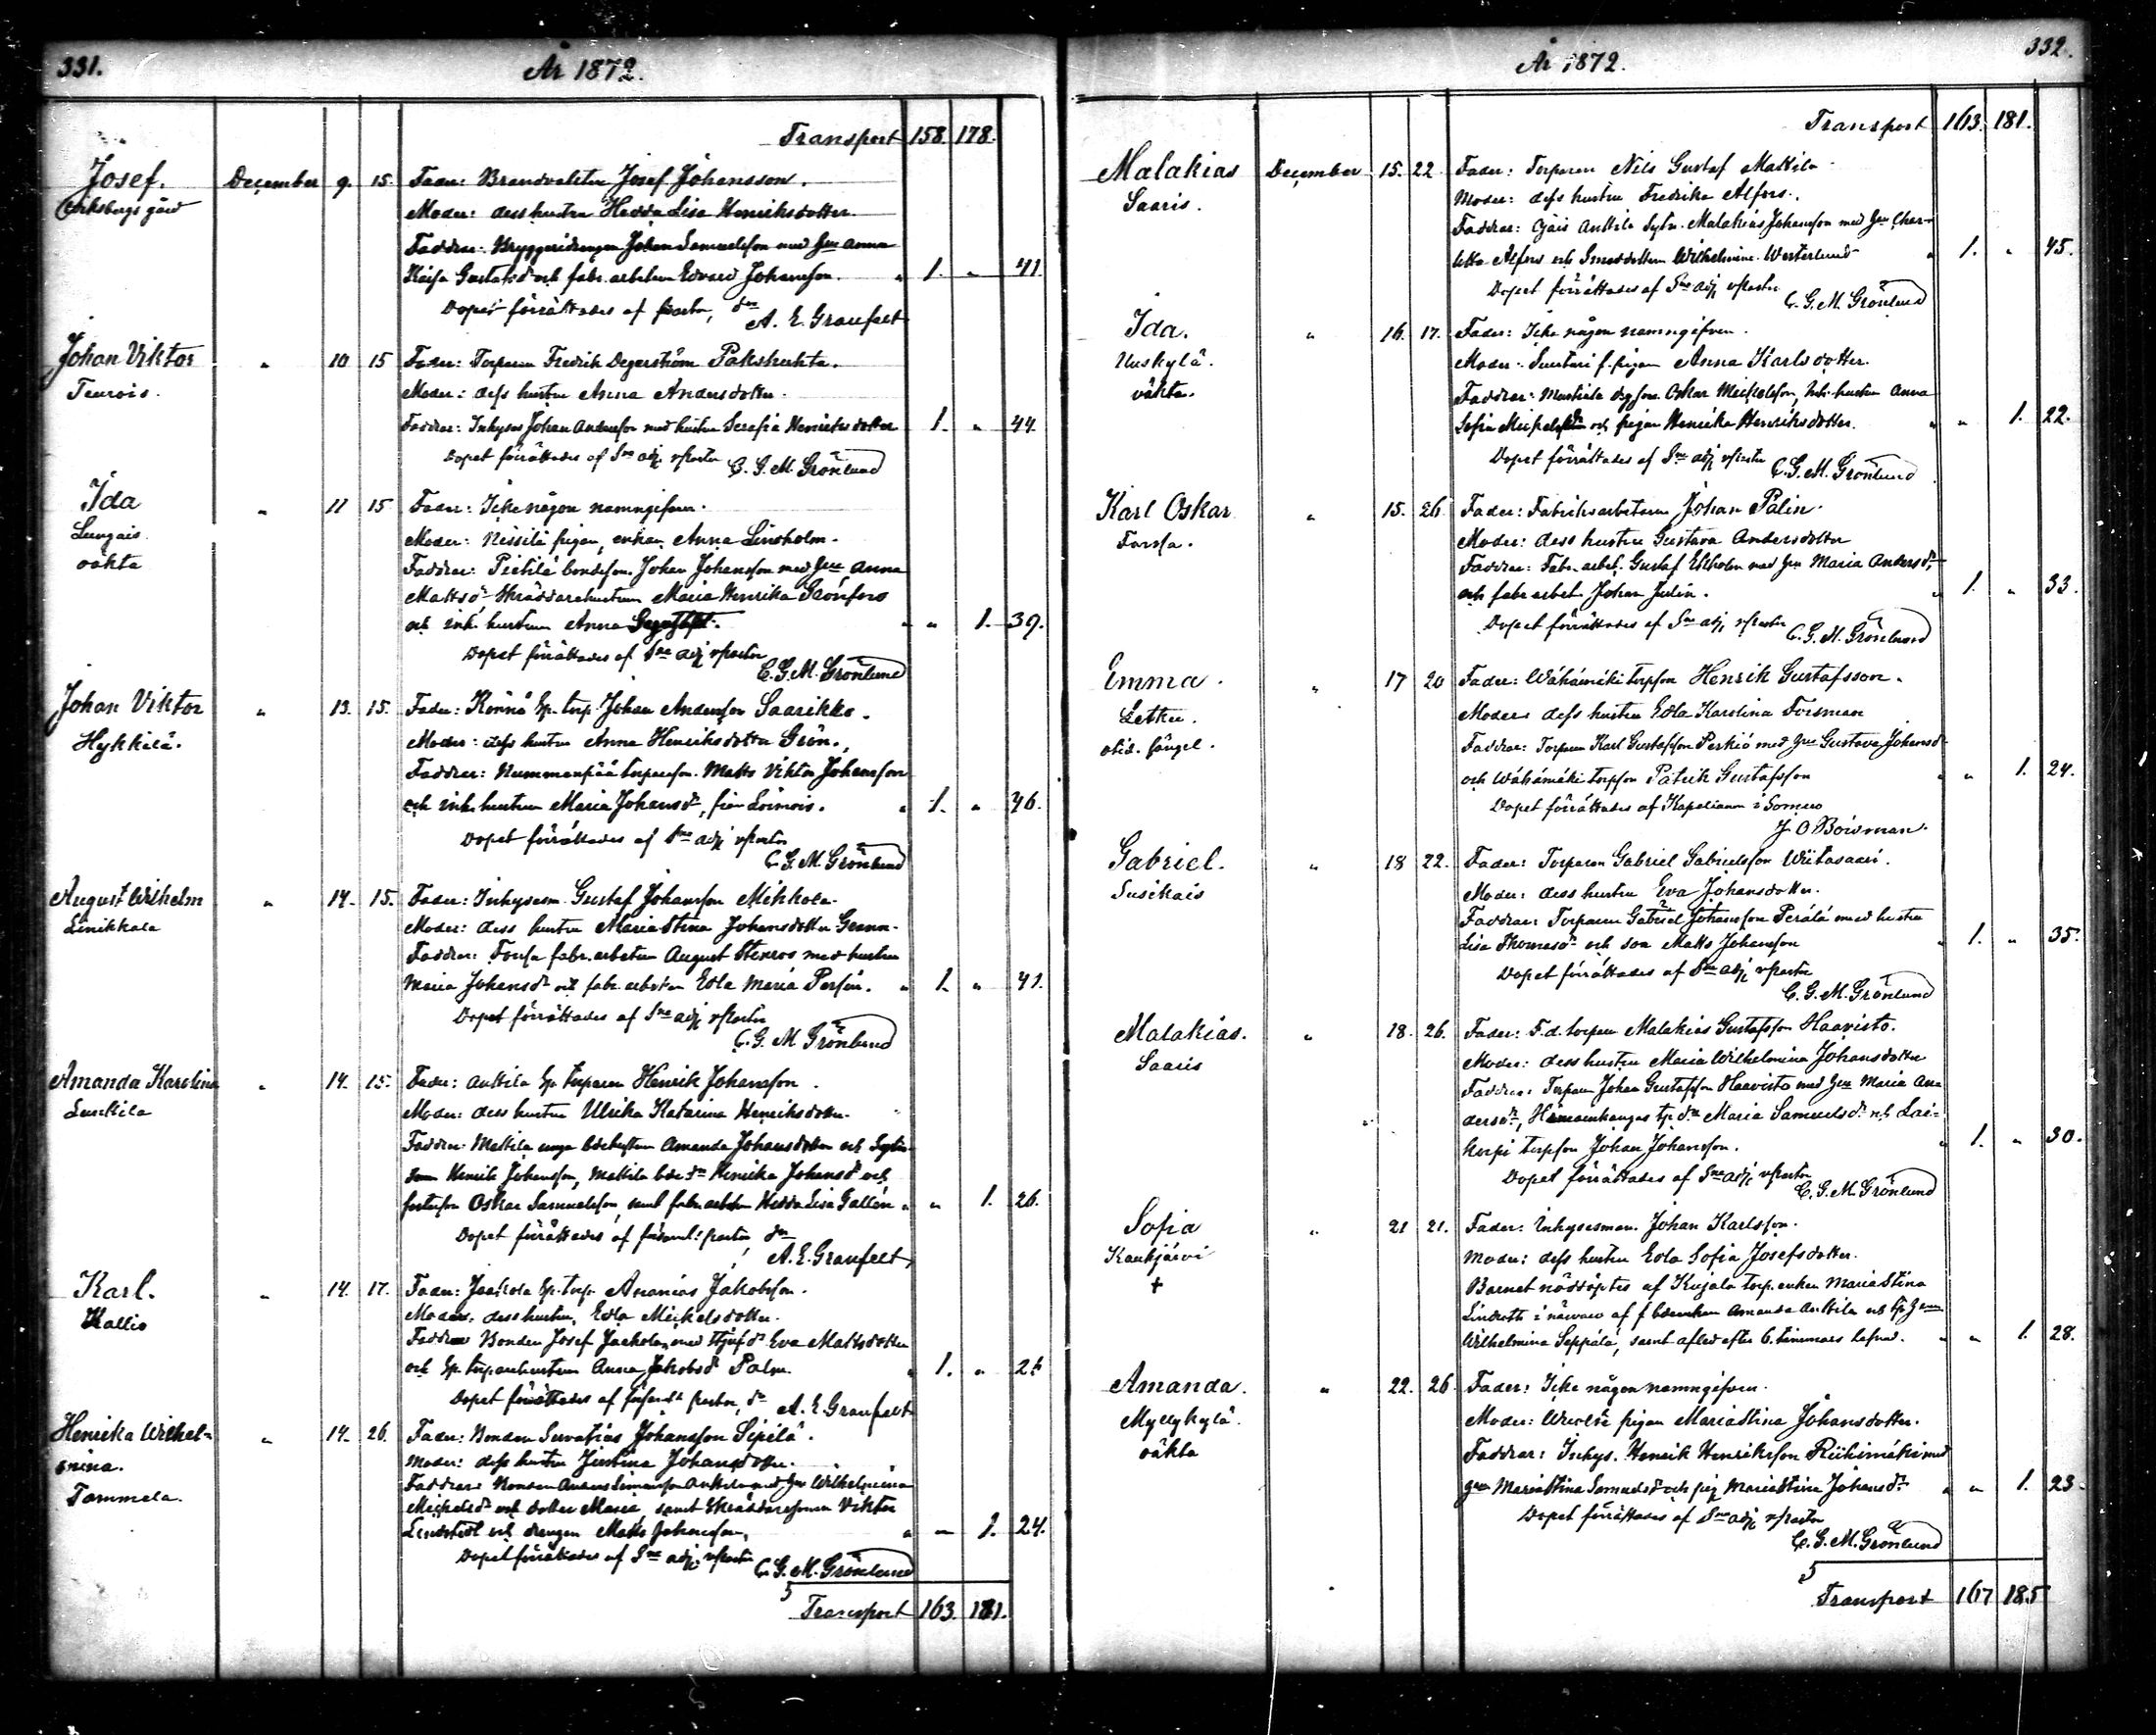 331.
År 1872.
Transport 158. 178.
Josef. December 9. 15. Fader: Brandvakten Josef Johansson.
gård Moder: dess hustru Hedda Lisa Henriksdotter.
Faddrar: Bryggeridrängen Johan Samuelsson med Hu Anna
Kaisa Gustafsd och fabr. arbetaren Edvard Johansson. " 1. " 41.
Dopet förrättades af pastor,
A. E. Granfelt
Johan Viktor " 10 15 Fader: Torparen Fredrik Degerström Pakshuhta.
Teurois. Moder: dess hustru Anna Andersdotter.
Faddrar: Inhyses Johan Andersson med hustru Serafia Henriksdotter 1. " 44.
Dopet förrättades af Sne adj vpastor
C. G. M. Grönlund
Ida " 11 15 Fader: Icke någon namngifven.
Lungais Moder: Nissilä pigan, enkan Anna Lindholm.
oäkta Faddrar: Pietilä bondeson Johan Johansson med Hu Anna
Mattsdr Skräddarehustrun Maria Henrika Grönfors
och inh. hustrun Anna " " 1. 39.
Dopet förrättades af Sne adj vpastor
C. G. M. Grönlund
Johan Viktor " 13. 15. Fader: Könnö Sp. torp. Johan Andersson Saarikko.
Hykkilä. Moder: dess hustru Anna Henriksdotter Grön.
Faddrar: Nummenpää torpareson Matts Viktor Johansson
och inh. hustrun Maria Johansdr, från Loimois. " 1. " 46.
Dopet förrättades af Sne adj vpastor
C. G. M. Grönlund
August Wilhelm " 14. 15. Fader: Inhysesm. Gustaf Johansson Mikkola.
Linikkala Moder: dess hustru Maria Stina Johansdotter
Faddrar: Forssa fabr. arbetaren August Stenroos med hustru
Maria Johansdr och fabr. arbetar Edla Maria " 1. " 41.
Dopet förrättades af Sne adj vpastor
C. G. M. Grönlund
Amanda Karolina " 14. 15. Fader: Anttila Sp. torparen Henrik Johansson.
Moder: dess hustru Ulrika Katarina Henriksdotter.
Faddrar: Mattila unga Amanda Johansdotter och
Henrik Johansson, Mattila Henrika Johansdr och
Oskar Samuelsson, samt fabr. arbetar Hedda Lisa Gallén " " 1. 26.
Dopet förrättades af pastor,
A. E. Granfelt
Karl. " 14. 17. Fader: Jaakola Sp. torp. Ananias Jakobsson.
Kallio Moder: dess hustru, Edla Mickelsdotter.
Faddrar Bonden Josef Jaakola, med Eva Mattsdotter
och Sp. torparehustrun Anna Jakobsdr Palm. " 1. " 26
Dopet förrättades af pastor,
A. E. Granfelt
Henrika Wilhel- " 14. 26. Fader: Bonden Servatius Johansson Sipilä.
mina. Moder: dess hustru Justina Johansdotter.
Tammela. Faddrar: Bonden Anders Simonsson Anttila med Hu Wilhelmina
Mickelsdr och dotter Maria, samt Skräddaresonen Viktor
Lindstedt och drengen Matts Johansson. " " 1. 24.
Dopet förrättades af Sne adj. vpastor
C. G. M. Grönlund
Transport 163. 181.
332.
År 1872.
Transport 163. 181.
Malakias December 15. 22 Fader: Torparen Nils Gustaf Mattila
Saaris. Moder: dess hustru Fredrika Alfors.
Faddrar: Ojais Anttila Malakias Johansson med Hu Char-
lotta Alfors och Smeddottern Wilhelmina Westerlund " 1. " 45.
Dopet förrättades af Sne adj vpastor
C. G. M. Grönlund
Ida. " 16. 17. Fader: Icke någon namngifven.
Uuskylä. Moder: f. pigan Anna Karlsdotter.
oäkta. Faddrar: Mustiala Oskar Mickelsson, inh. hustru Anna
Sofia och pigan Henrika Henriksdotter. " " 1. 22.
Dopet förrättades af Sne adj vpastor
C. G. M. Grönlund
Karl Oskar " 15. 26 Fader: Fabriksarbetaren Johan Palin.
Forssa. Moder: dess hustru Gustava Andersdotter
Faddrar: Fabr. arbet. Gustaf Ekholm med Hu Maria Andersdr
och fabr arbet. Johan Julin. " 1. " 33.
Dopet förrättades af Sne adj vpastor
C. G. M. Grönlund
Emma. " 17 20 Fader: Wähämäki torpson Henrik Gustafsson.
Letku. Moder dess hustru Edla Karolina Forsman
Faddrar: Torparen Karl Gustafsson Perkiö med Hu Gustava Johansdr
och Wähämäki torpson Patrik Gustafsson " " 1. 24.
Dopet förrättades af Kapellanen i Somero
J O Boisman.
Gabriel. " 18 22. Fader: Torparen Gabriel Gabrielsson Wiitasaari.
Susikais Moder: dess hustru Eva Johansdotter.
Faddrar: Torparen Gabriel Johansson Perälä med hustru
Lisa Thomasdr och son Matts Johansson " 1. " 35.
Dopet förrättades af Sne adj vpastor
C. G. M. Grönlund
Malakias. " 18. 26. Fader: F.d. torpar Malakias Gustafsson Haavisto.
Saaris Moder: dess hustru Maria Wilhelmina Johansdotter
Faddrar: Torparen Johan Gustafsson Haavisto med Hu Maria An-
dersdr, Maria Samuelsdr och Lai-
korpi torpson Johan Johansson. " 1. " 30.
Dopet förrättades af Sne adj. vpastor
C. G. M. Grönlund
Sofia " 21 21. Fader: Inhysesman. Johan Karlsson.
Kaukjärvi Moder: dess hustru Edla Sofia Josefsdotter.
+ Barnet nöddöptes af Kujala torp. enkan Maria Stina
Lindroth i närvaro af Amanda Anttila och
Wilhelmina Seppälä, samt afled efter 6. timmars lefnad. " " 1. 28.
Amanda. " 22. 26 Fader: Icke någon namngifven.
Myllykylä. Moder: pigan Maria Stina Johansdotter.
oäkta Faddrar: Inhys. Henrik Henriksson Riihimäki med
Hu Maria Stina Samuelsdr och pig Maria Stina Johansdr " " 1. 23.
Dopet förrättades af Sne adj vpastor
C. G. M. Grönlund
Transport 167 185